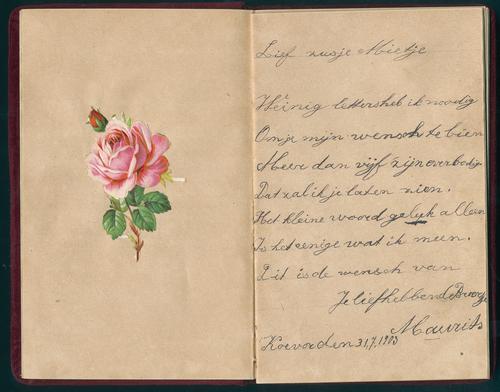 Lief zusje Mietje
Weinig letters heb ik noodig
Om je mijn wensch te bien
Meer dan vijf zijn overbodig
Dat zal ik je laten zien.
Het kleine woord geluk alleen
Is het eenige wat ik meen.
Dit is de wensch van
Je liefhebbende Broertje
Maurits
Koevorden 31,7,1903